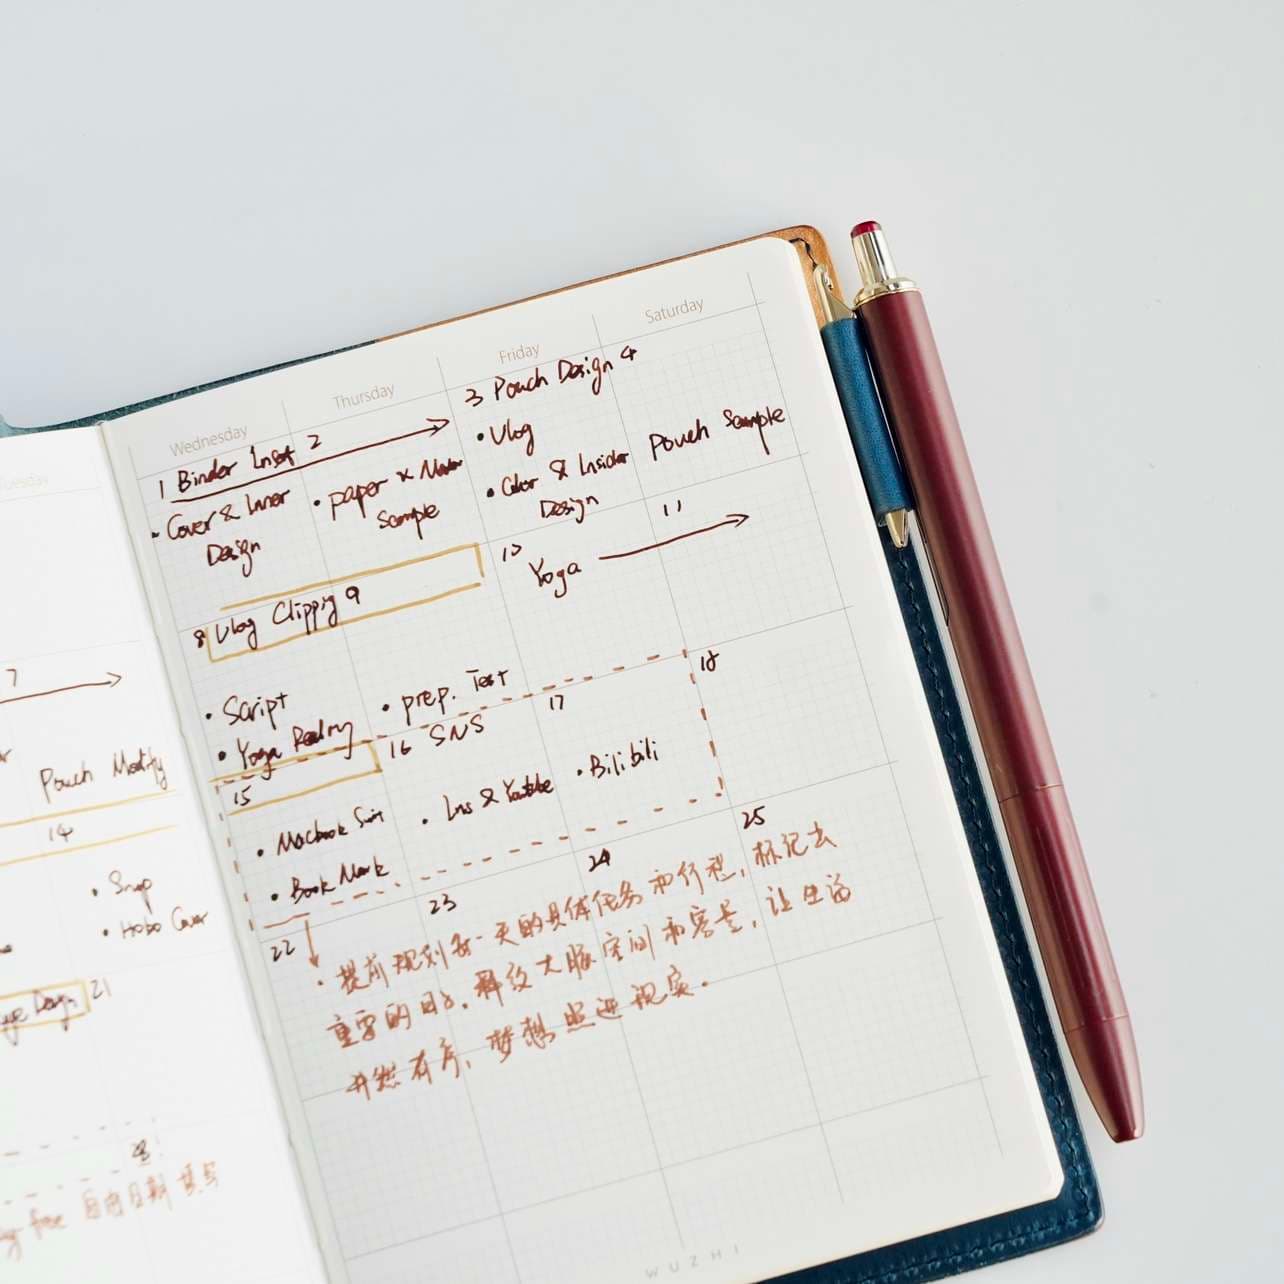 Wednesday
Thursday
Friday
Saturday
1 Binder Inset 2
3 Pouch Design 4
• Cover & Inner
Design
• paper x
Sample
• Vlog
• Color & Insider
Design
Pouch Sample
8 Vlog Clipping 9
10
Yoga
11
• Script
• Yoga
• prep. Test
7
Pouch Modify
14
• Snap
• Hobo Cover
Design 21
15
16 SNS
17
18
• Macbook
• Book Mark
• Ins & Youtube
• Bilibili
22
23
24
25
• 提前规划每一天的具体任务和行程，标记去
重要的日子。释放大脑空间和容量，让生活
井然有序，梦想照进现实。
free 自由日期填写
WUZHI